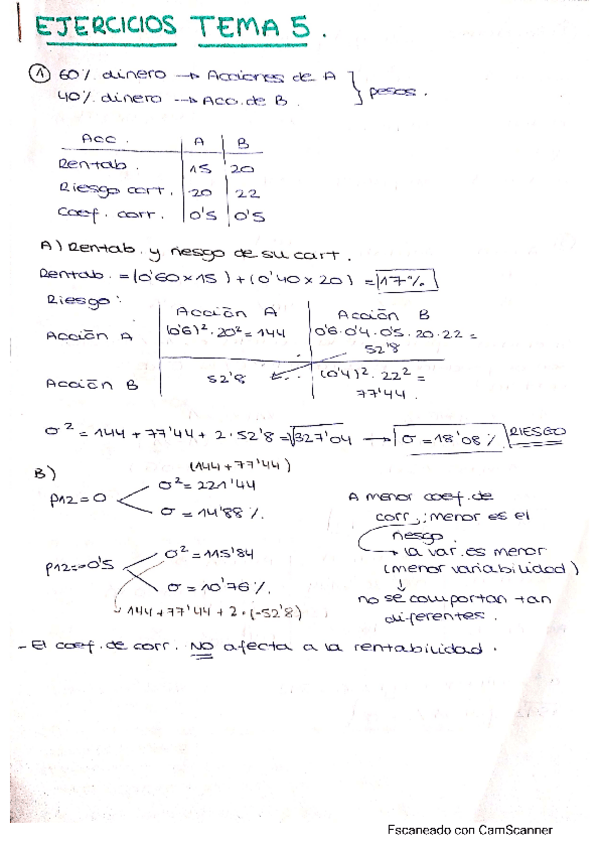 EJERCICIOS TEMA 5.
① 60% dinero → Acciones de A
40% dinero → Acc. de B.
} pesos.
Acc. A B
Rentab. 15 20
Riesgo cart. 20 22
Coef. corr. 0'5 0'5
A) Rentab. y riesgo de su cart.
Rentab. = (0'60 x 15) + (0'40 x 20) = 17%
Riesgo:
Acción A Acción B
Acción A (0'6)². 20² = 144 0'6·0'4·0'5·20·22 =
52'8
Acción B 52'8 (0'4)². 22² =
77'44.
σ² = 144 + 77'44 + 2·52'8 = √327'04 → σ = 18'08% RIESGO
B)
(144 + 77'44)
ρ12 = 0 σ² = 221'44
σ = 14'88%.
ρ12 = -0'5 σ² = 115'84
σ = 10'76%.
144 + 77'44 + 2·(-52'8)
A menor coef. de
corr.; menor es el
riesgo.
→ la var. es menor
(menor variabilidad)
↓
no se comportan tan
diferentes.
- El coef. de corr. NO afecta a la rentabilidad.
Escaneado con CamScanner